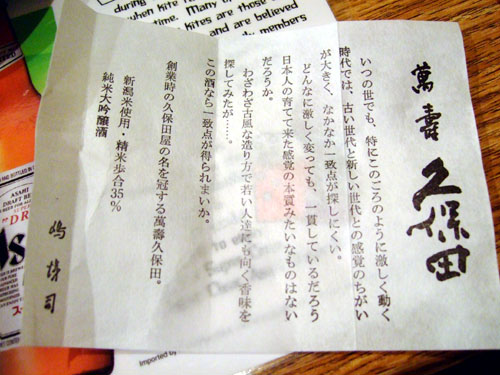 萬壽
久保田
いつの世でも、特にこのごろのように激しく動く
時代では、古い世代と新しい世代との感覚のちがい
が大きく、なかなか一致点が探しにくい。
どんなに激しく変っても、一貫しているだろう
日本人の育てて来た感覚の本質みたいなものはない
だろうか。
わざわざ古風な造り方で若い人達にも向く香味を
探してみたが……。
この酒なら一致点が得られまいか。
創業時の久保田屋の名を冠する萬壽久保田。
新潟米使用・精米歩合35%
純米大吟醸酒
嶋 悌司
during
when kite
rites. Many
kites are those
and are believed
members
ASAHI
DRAFT
Imported by